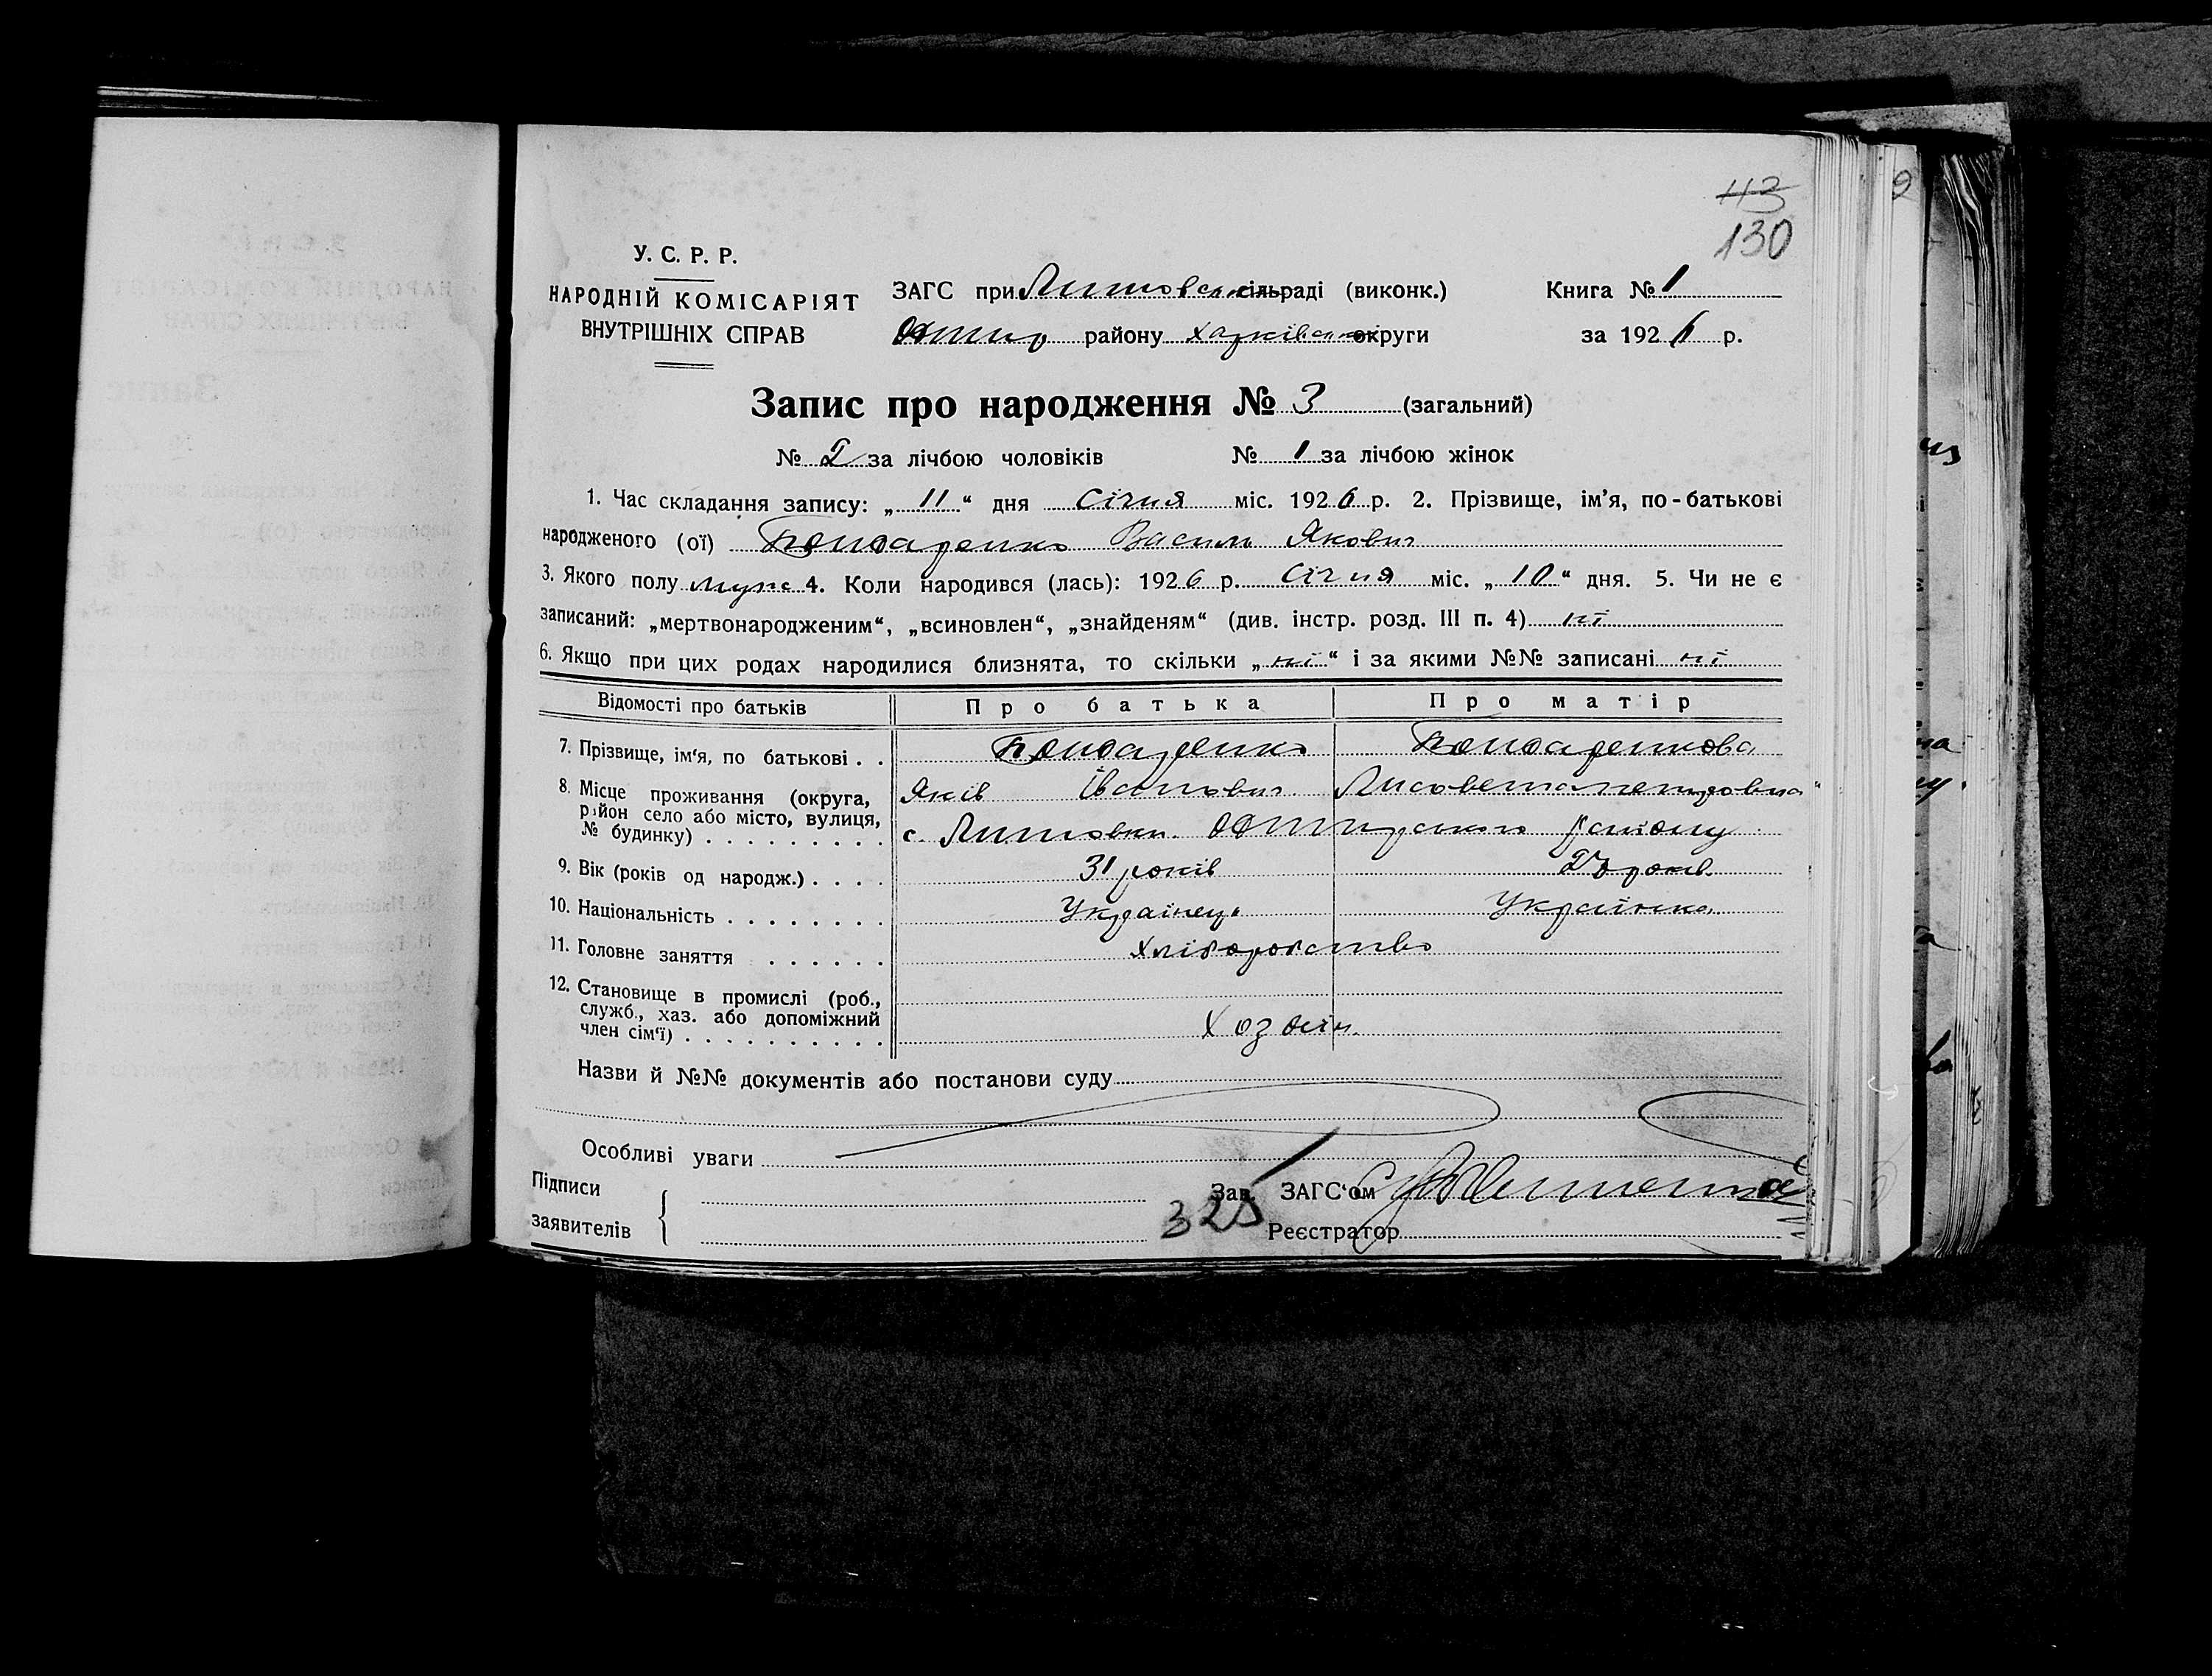 113
130
У. С. Р. Р.
НАРОДНІЙ КОМІСАРІЯТ
ВНУТРІШНІХ СПРАВ
ЗАГС при Литовськ сільраді (виконк.)
Охтир району Харківськ округи
Книга № 1
за 1926 р.
Запис про народження № 3 (загальний)
№ 2 за лічбою чоловіків № 1 за лічбою жінок
1. Час складання запису: „ 11 “ дня Січня міс. 1926 р. 2. Прізвище, ім’я, по-батькові
народженого (ої) Бондаренко Василь Якович
3. Якого полу муж 4. Коли народився (лась): 1926 р. Січня міс. „ 10 “ дня. 5. Чи не є
записаний: „мертвонародженим“, „всиновлен“, „знайденям“ (див. інстр. розд. III п. 4) ні
6. Якщо при цих родах народилися близнята, то скільки „ ні “ і за якими №№ записані ні
Відомості про батьків Про батька Про матір
7. Прізвище, ім‘я, по батькові . . Бондаренко Бондаренкова
Яків Іванович Лисовета Петровна
8. Місце проживання (округа, район село або місто, вулиця, № будинку) . . . . . . . . . с. Литовки Охтирського району
9. Вік (років од народж.) . . . . 31 років 27 років
10. Національність . . . . . . . . Українець Українка
11. Головне заняття . . . . . . Хліборобство
12. Становище в промислі (роб., служб., хаз. або допоміжний член сім‘ї) . . . . . . . . . . Хозяїн
Назви й №№ документів або постанови суду
Особливі уваги
Підписи
заявителів
Зав. ЗАГС‘ом
325
Реєстратор